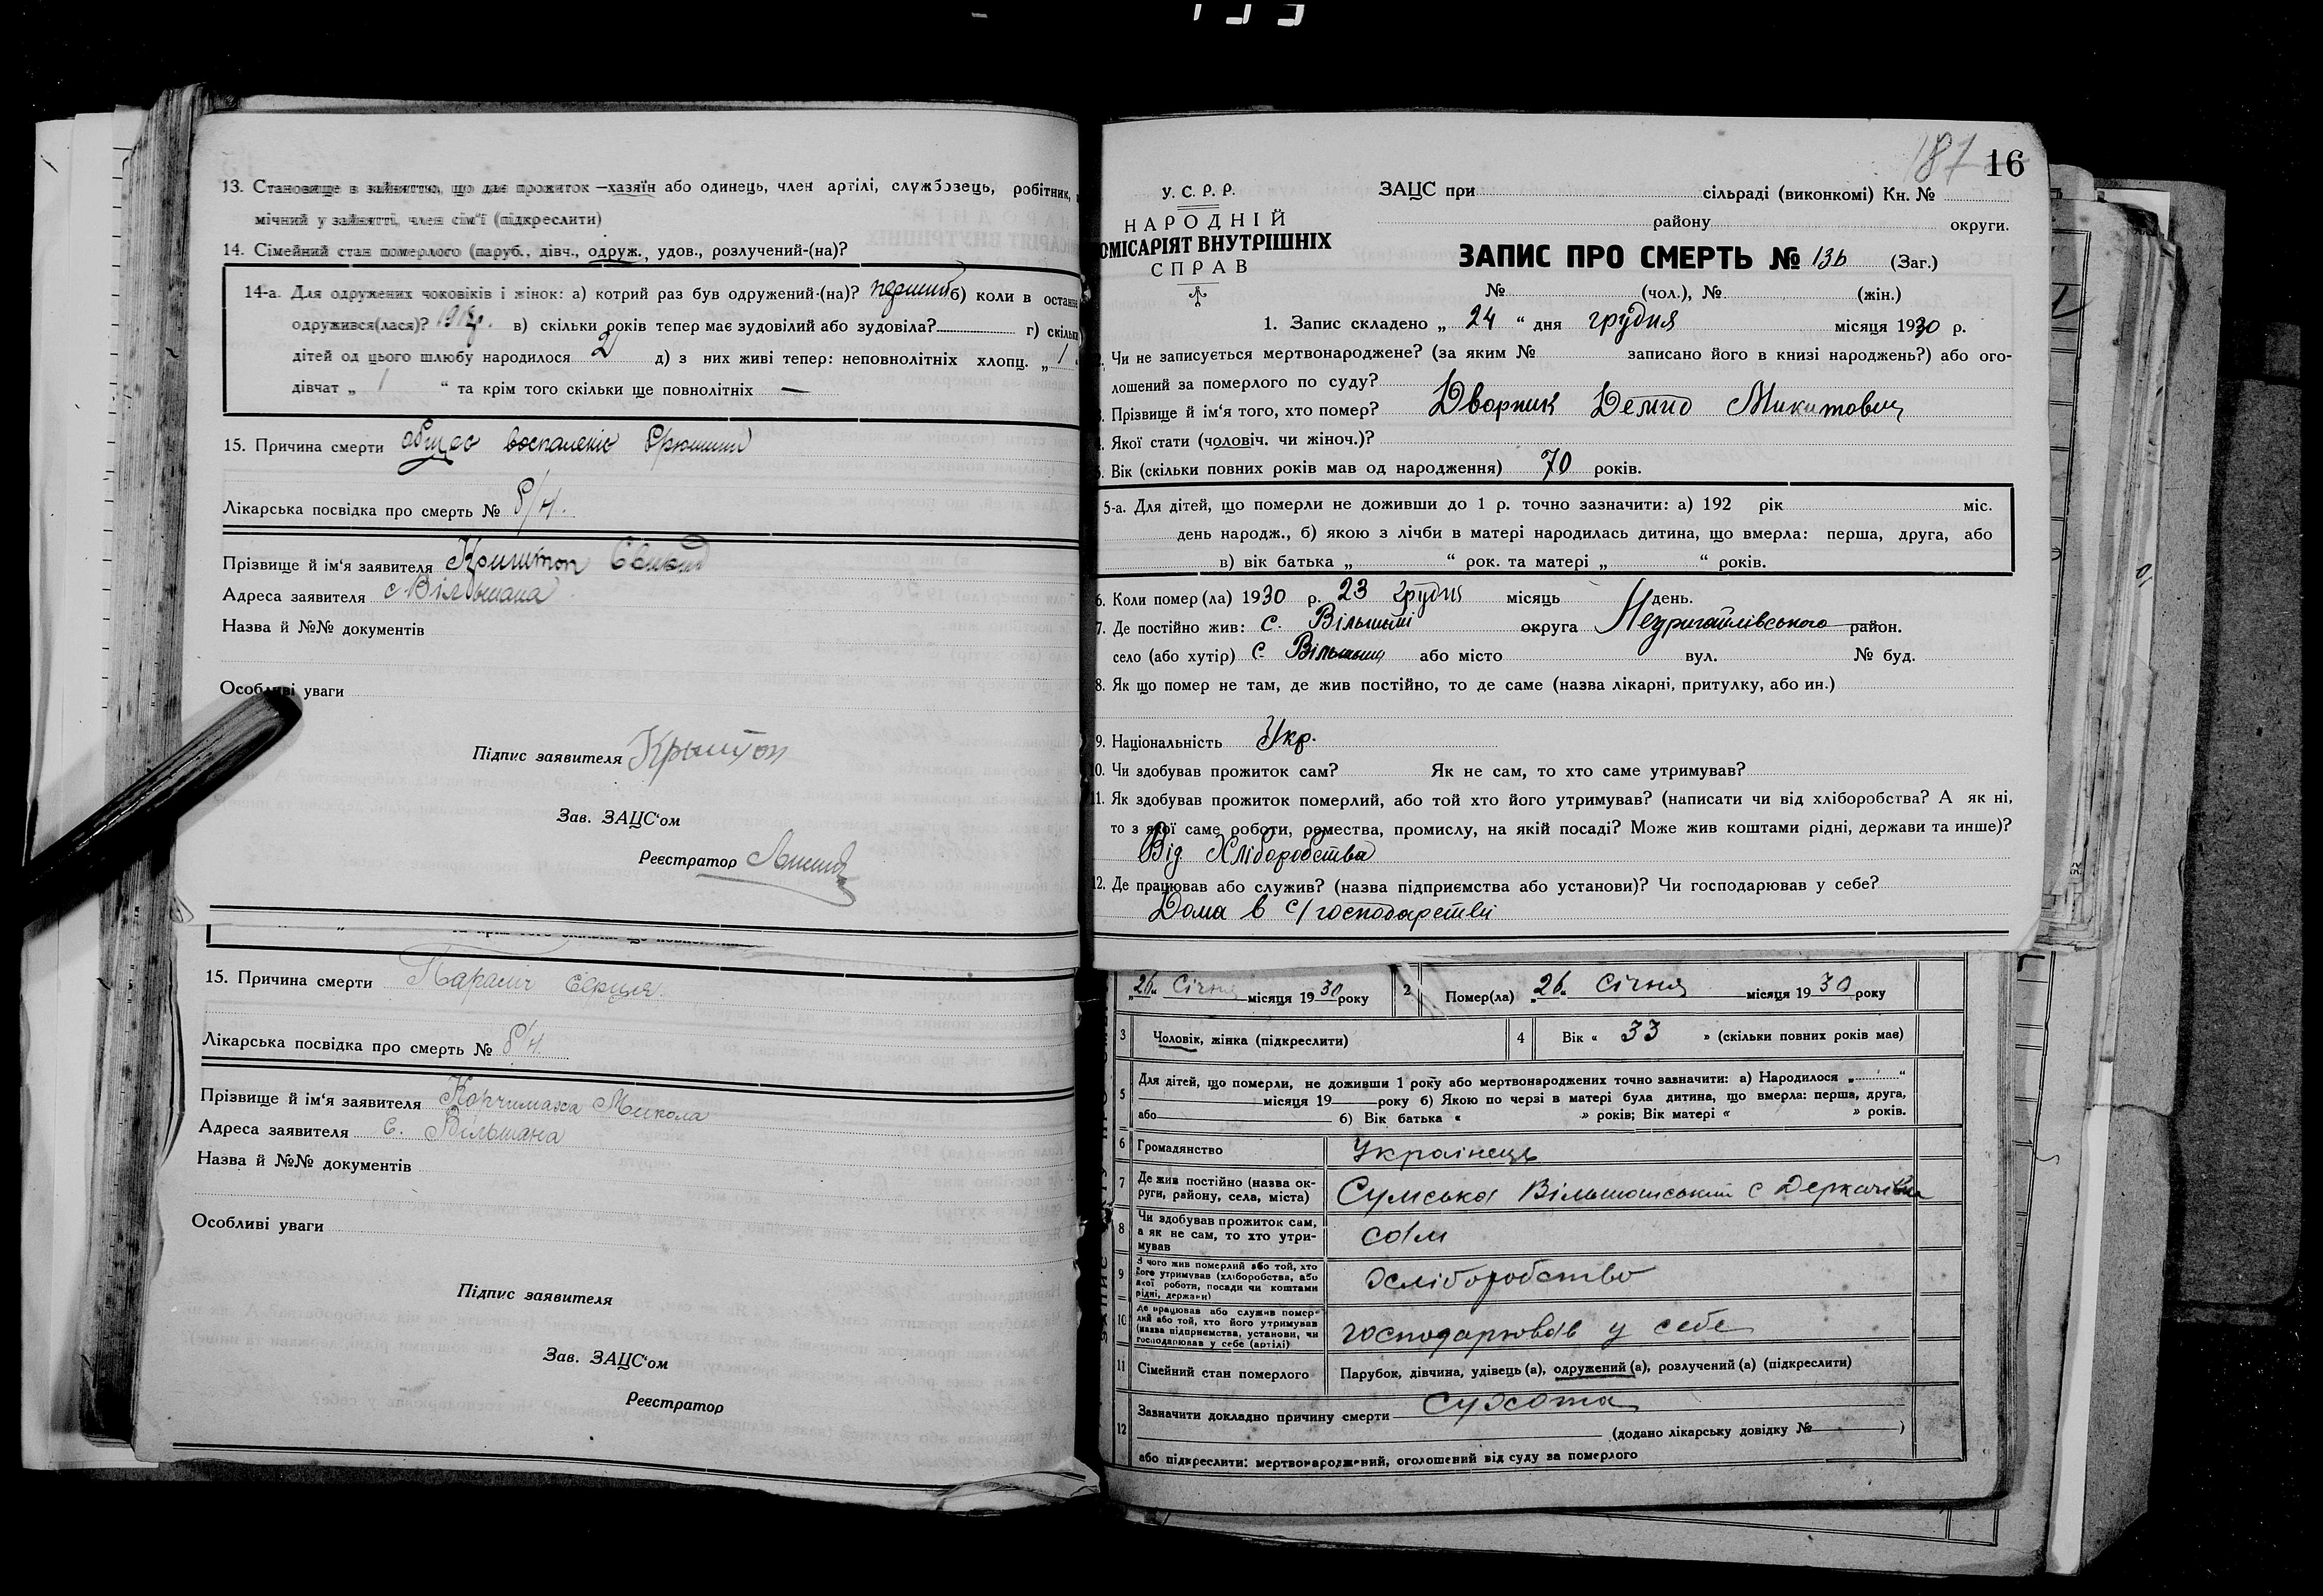 13. Становище в зайняттю, що дає прожиток —хазяїн або одинець, член артілі, службовець, робітник,
мічний у зайнятті, член сім'ї (підкреслити)
14. Сімейний стан померлого (паруб., дівч., одруж., удов., розлучений-(на)?
14-а. Для одружених чоловіків і жінок: а) котрий раз був одружений-(на)? перший б) коли в останнє
одружився(лася)? в) скільки років тепер має зудовілий або зудовіла? г) скільки
дітей од цього шлюбу народилося 2 д) з них живі тепер: неповнолітніх хлопц. „ 1
дівчат „ 1 “ та крім того скільки ще повнолітніх —
15. Причина смерти общее воспаление брюшины
Лікарська посвідка про смерть № б/н.
Прізвище й ім'я заявителя Криштоп
Адреса заявителя с Вільшана
Назва й №№ документів
Особливі уваги
Підпис заявителя Крыштоп
Зав. ЗАЦС'ом
Реєстратор
15. Причина смерти Параліч серця.
Лікарська посвідка про смерть № б/н.
Прізвище й ім'я заявителя Корчимаха Микола
Адреса заявителя с. Вільшана
Назва й №№ документів
Особливі уваги
Підпис заявителя
Зав. ЗАЦС'ом
Реєстратор
187 16
У. С. Р. Р.
НАРОДНІЙ
ОМІСАРІЯТ ВНУТРІШНІХ
СПРАВ
ЗАЦС при сільраді (виконкомі) Кн. №
району округи.
ЗАПИС ПРО СМЕРТЬ № 136 (Заг.)
№ (чол.), № (жін.)
1. Запис складено „ 24 “ дня грудня місяця 1930 р.
Чи не записується мертвонароджене? (за яким № записано його в книзі народжень?) або ого-
лошений за померлого по суду?
3. Прізвище й ім'я того, хто помер? Дворник Демид Микитович
Якої стати (чоловіч. чи жіноч.)?
5. Вік (скільки повних років мав од народження) 70 років.
5-а. Для дітей, що померли не доживши до 1 р. точно зазначити: а) 192 рік міс.
день народж., б) якою з лічби в матері народилась дитина, що вмерла: перша, друга, або
в) вік батька „ “ рок. та матері „ “ років.
6. Коли помер (ла) 1930 р. 23 грудня місяць день.
7. Де постійно жив: с. Вільшані округа Недригайлівського район.
село (або хутір) с. Вільшана або місто вул. № буд.
8. Як що помер не там, де жив постійно, то де саме (назва лікарні, притулку, або ин.)
9. Національність Укр.
10. Чи здобував прожиток сам? Як не сам, то хто саме утримував?
11. Як здобував прожиток померлий, або той хто його утримував? (написати чи від хліборобства? А як ні,
то з якої саме роботи, ремества, промислу, на якій посаді? Може жив коштами рідні, держави та инше)?
Від Хліборобства
12. Де працював або служив? (назва підприємства або установи)? Чи господарював у себе?
Дома в с/господарстві
„26“ Січня місяця 1930 року 2 Помер(ла) „26“ Січня місяця 1930 року
3 Чоловік, жінка (підкреслити) 4 Вік « 33 » (скільки повних років має)
5 Для дітей, що померли, не доживши 1 року або мертвонароджених точно зазначити: а) Народилося „ “
місяця 19 року б) Якою по черзі в матері була дитина, що вмерла: перша, друга,
або б) Вік батька « » років; Вік матері « » років.
6 Громадянство Українець
7 Де жив постійно (назва ок-
руги, району, села, міста) Сумська Вільшанський с Деркачівка
8 Чи здобував прожиток сам,
а як не сам, то хто утри-
мував сам
9 З чого жив померлий або той, хто
його утримував (хліборобства, або
якої роботи, посади чи коштами
рідні, держави) Хліборобство
10 Де працював або служив помер-
лий або той, хто його утримував
(назва підприємства, установи, чи
господарював у себе (артілі) господарював у себе
11 Сімейний стан померлого Парубок, дівчина, удівець (а), одружений (а), розлучений (а) (підкреслити)
12 Зазначити докладно причину смерти Сухота
(додано лікарську довідку № )
або підкреслити: мертвонароджений, оголошений від суду за померлого